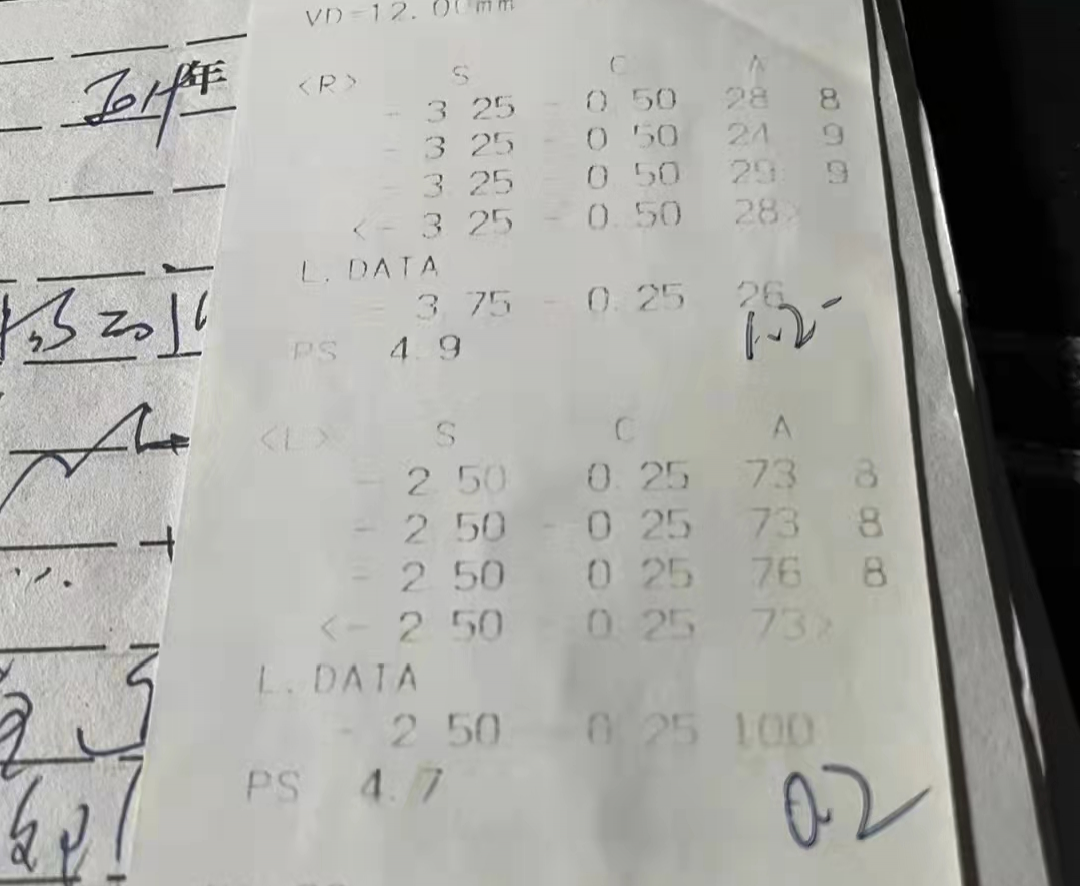 VD-12.00mm
<R> S C A
- 3 25 - 0 50 28 8
- 3 25 - 0 50 24 9
- 3 25 0 50 29 9
<- 3 25 - 0. 50 28>
L. DATA
- 3. 75 - 0. 25 26
PS 4. 9
1.2
<L> S C A
- 2 50 0. 25 73 8
- 2 50 - 0 25 73 8
- 2 50 0 25 76 8
<- 2 50 0. 25 73>
L. DATA
- 2 50 0 25 100
PS 4. 7
0.2
年